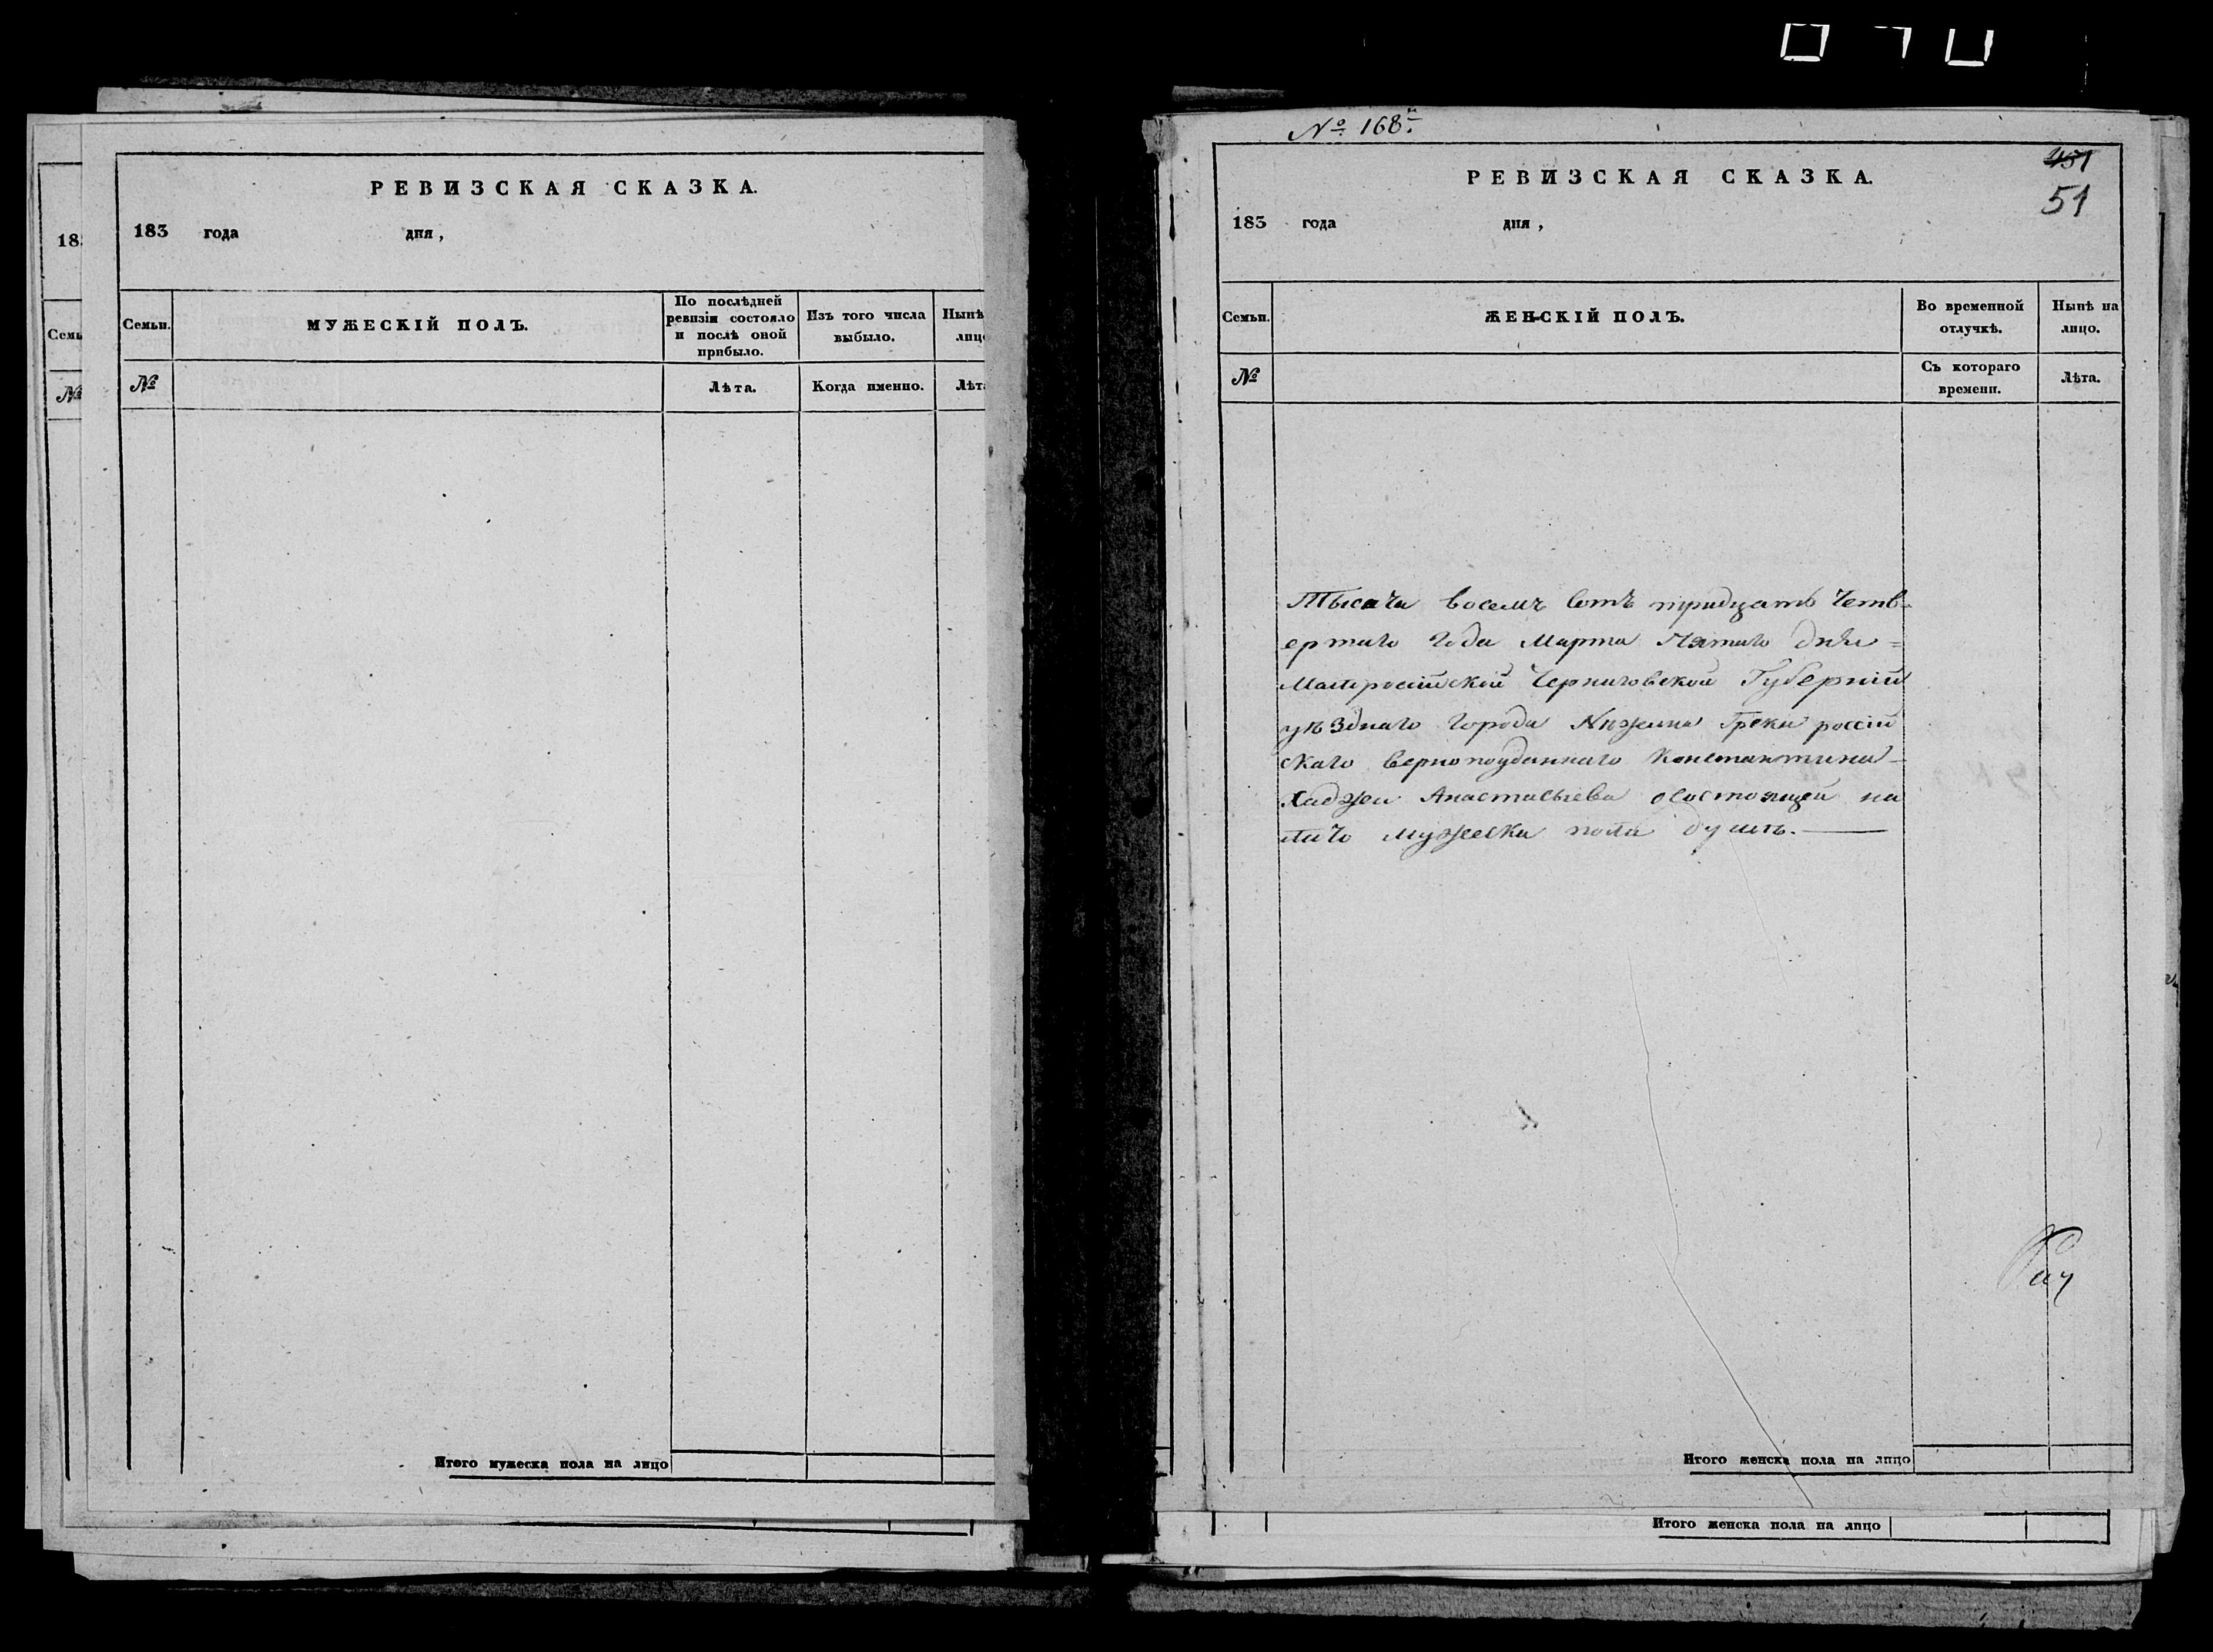 РЕВИЗСКАЯ СКАЗКА.
183 года дня,
Семьи.
МУЖЕСКІЙ ПОЛЪ.
По послѣдней
ревизіи состояло
и послѣ оной
прибыло.
Изъ того числа
выбыло.
Нынѣ
лиц
№
Лѣта.
Когда именно.
Лѣт
Итого мужеска пола на лицо
18
Семь
№
№ 168й
РЕВИЗСКАЯ СКАЗКА.
451
51
183 года дня,
Семьи.
ЖЕНСКІЙ ПОЛЪ.
Во временной
отлучкѣ.
Нынѣ на
лицо.
№
Съ котораго
времени.
Лѣта.
Тысяча восемъ сотъ тридцать четв-
ертаго года Марта Пятаго дня =
Малороссійской Черниговской Губерніи
уѣзднаго города Нѣжина Грека россій
скаго верноподданнаго Константина
Хаджи Анастасьева о состоящей на
лицо мужеска пола душѣ.
Итого женска пола на лицо
Итого женска пола на лицо